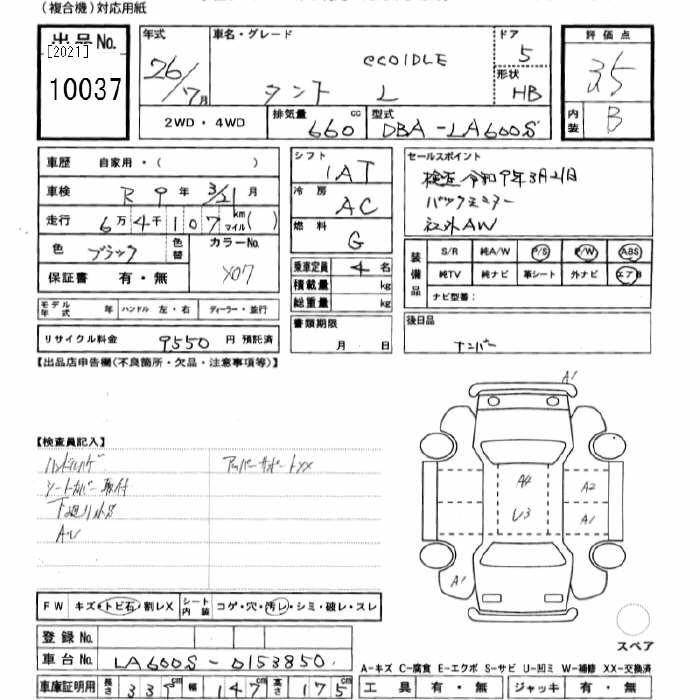 (複合機)対応用紙
出品No. [2021] 10037
年式 26/7月
車名・グレード ecoIDLE タント L
ドア 5
形状 HB
評価点 3.5
内装 B
2WD・4WD
排気量 660 cc
型式 DBA-LA600S
車歴 自家用・( )
車検 R 9年 3/21月
走行 6万4千107 km マイル( )
色 ブラック 色替
カラーNo. X07
保証書 有・無
モデル年式 年 ハンドル 左・右 ディーラー・並行
リサイクル料金 9550 円 預託済
シフト IAT
冷房 AC
燃料 G
乗車定員 4 名
積載量 kg
総重量 kg
書類期限 月 日
セールスポイント
検査令和9年3月21日
バックモニター
社外AW
装備品 S/R 純A/W P/S P/W ABS
純TV 純ナビ 革シート 外ナビ エアB
ナビ型番:
後日品
ナンバー
【出品店申告欄(不良箇所・欠品・注意事項等)】
【検査員記入】
ハンドルハゲ
シートカバー取付
下廻り
アッパーサポートXX
A1
A4
U3
A2
A1
A1
スペア
FW キズ・トビ石・割レX シート内装 コゲ・穴・汚レ・シミ・破レ・スレ
登録No.
車台No. LA600S-0153850
A-キズ C-腐食 E-エクボ S-サビ U-凹ミ W-補修 XX-交換済
車庫証明用 長さ 339cm 幅 147cm 高さ 175cm
工具 有・無 ジャッキ 有・無